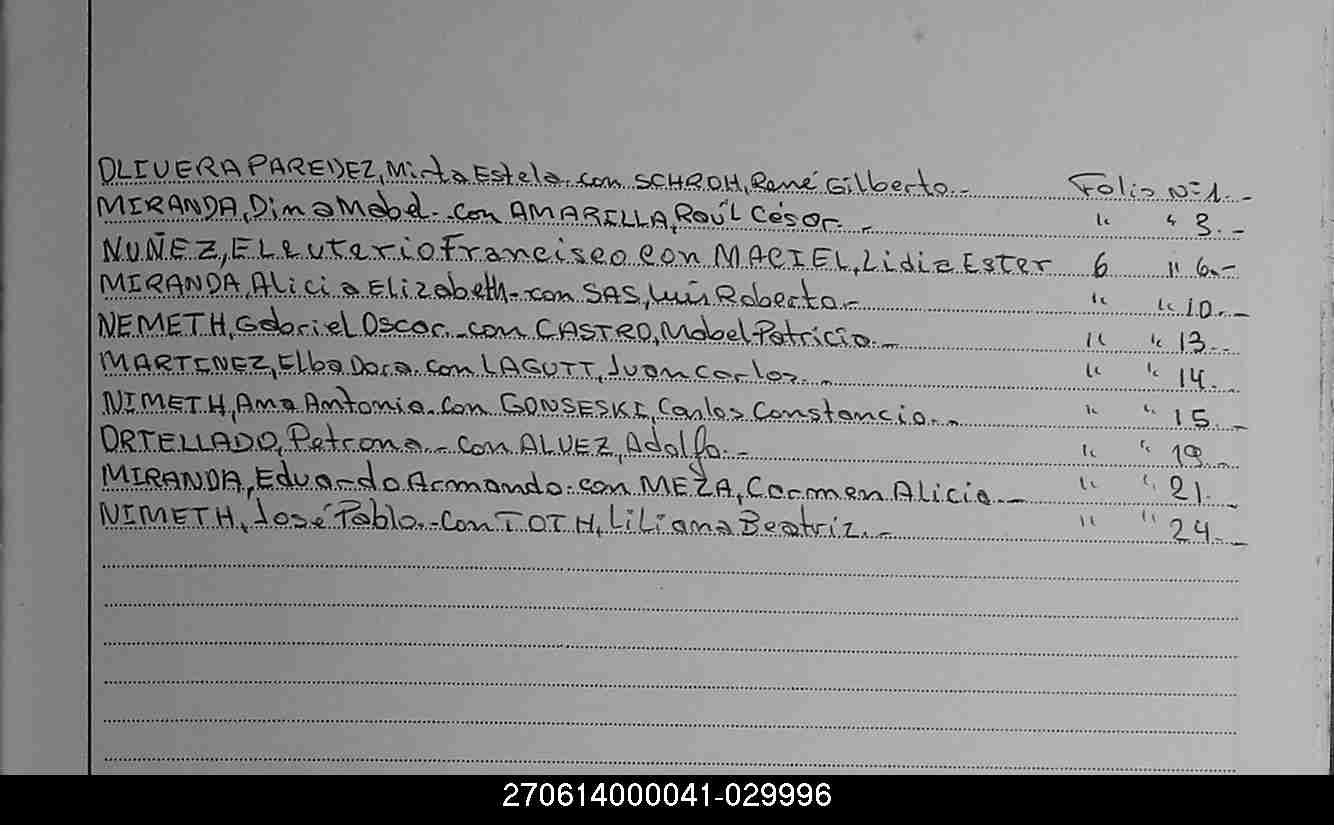 OLIVERA PAREDEZ, Mirta Estela.con SCHROH, René Gilberto.- Folio Nº 1.-
MIRANDA, Dina Mabel.-con AMARILLA, Raúl César.- " " 3.-
NUÑEZ, Eleuterio Francisco con MACIEL, Lidia Ester 6 " 6.-
MIRANDA, Alicia Elizabeth.-con SAS, Luis Roberto.- " " 10.-
NEMETH, Gabriel Oscar.-con CASTRO, Mabel Patricia.- " " 13.-
MARTINEZ, Elba Dora.con LAGUTT, Juan Carlos.- " " 14.-
NIMETH, Ana Antonia.con GONSESKI, Carlos Constancio.- " " 15.-
ORTELLADO, Petrona.-con ALVEZ, Adolfo.- " " 19.-
MIRANDA, Eduardo Armando.con MEZA, Carmen Alicia.- " " 21.-
NIMETH, José Pablo.-con TOTH, Liliana Beatriz.- " " 24.-
270614000041-029996